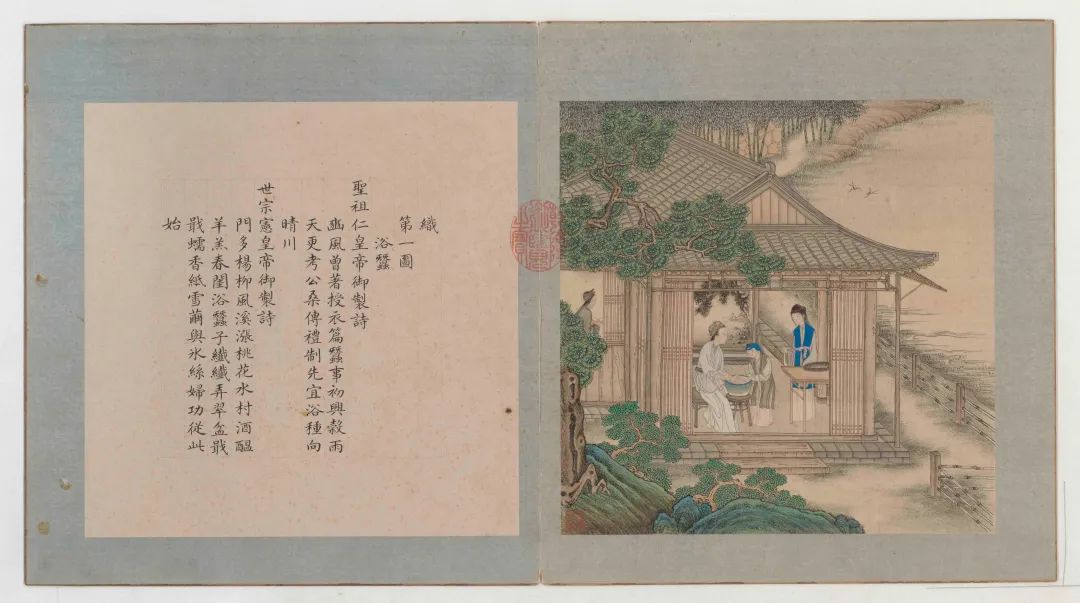 織
第一圖
浴蠶
聖祖仁皇帝御製詩
豳風曾著授衣篇蠶事初興穀雨
天更考公桑傳禮制先宜浴種向
晴川
世宗憲皇帝御製詩
門多楊柳風溪漲桃花水村酒醞
羊羔春閨浴蠶子纖纖弄翠盆戢
戢蠕香紙雪繭與氷絲婦功從此
始